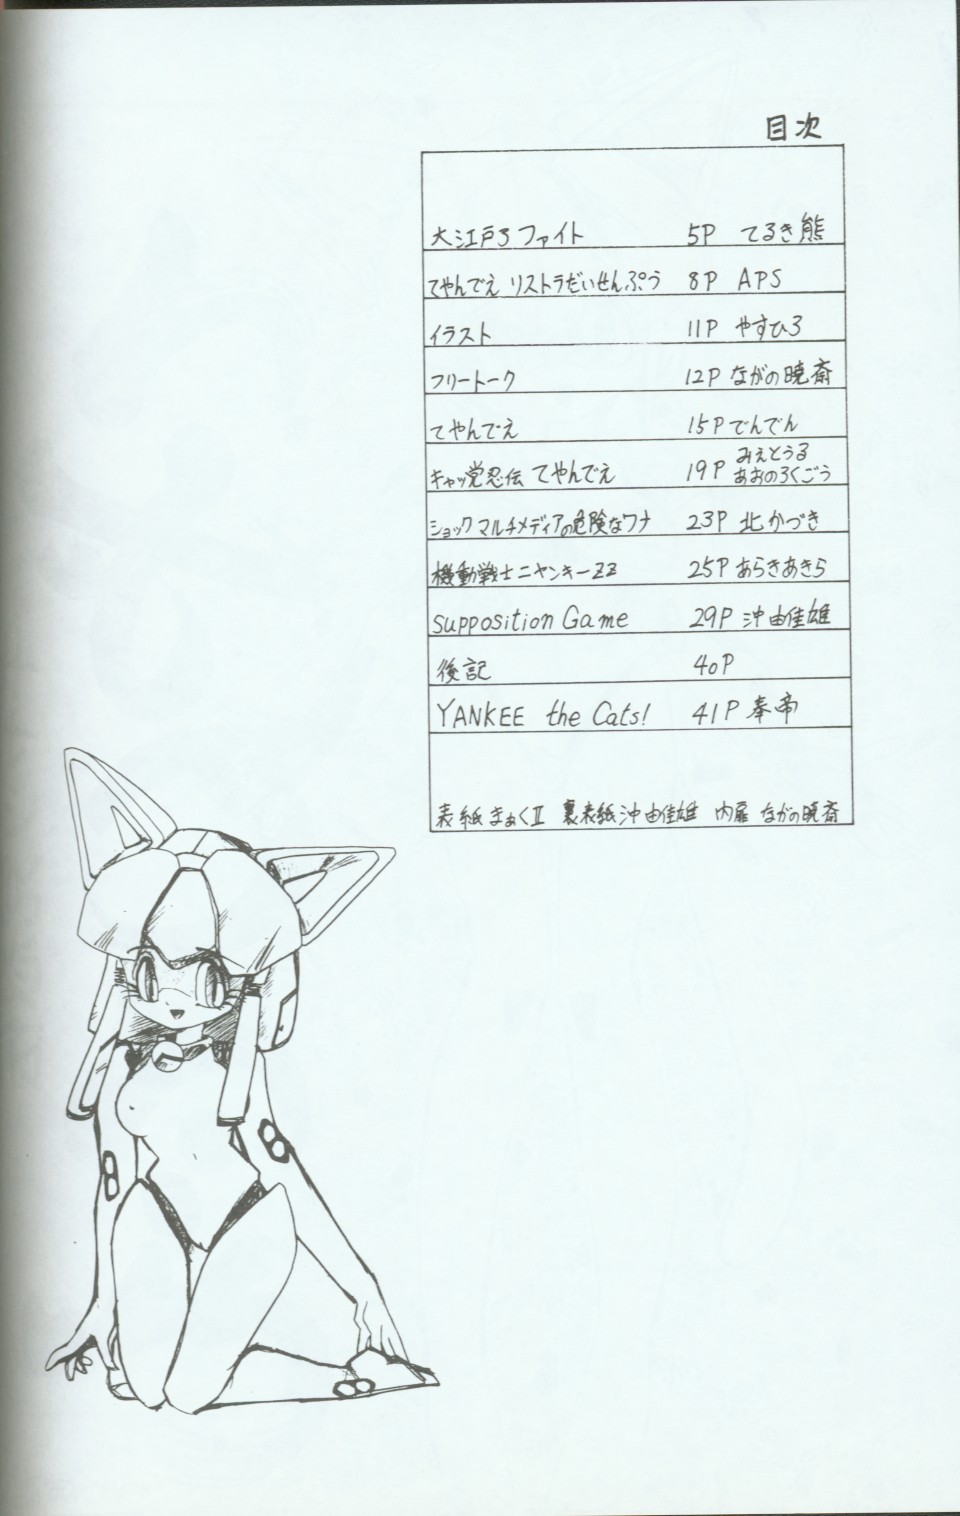 目次
大江戸ファイト 5P てるき熊
てやんでえ リストラだいせんぷう 8P APS
イラスト 11P やすひろ
フリートーク 12P ながの暁斎
てやんでえ 15P でんでん
キャッ党忍伝 てやんでえ 19P みえとうる あおのろくごう
ショック マルチメディアの危険なワナ 23P 北かづき
機動戦士ニャンキーZZ 25P あらきあきら
supposition Game 29P 沖由佳雄
後記 40P
YANKEE the Cats! 41P 奉帝
表紙 まぁくII 裏表紙 沖由佳雄 内扉 ながの暁斎